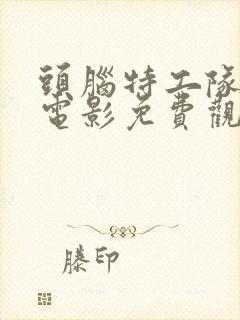 頭腦特工隊
電影免費觀
滕印